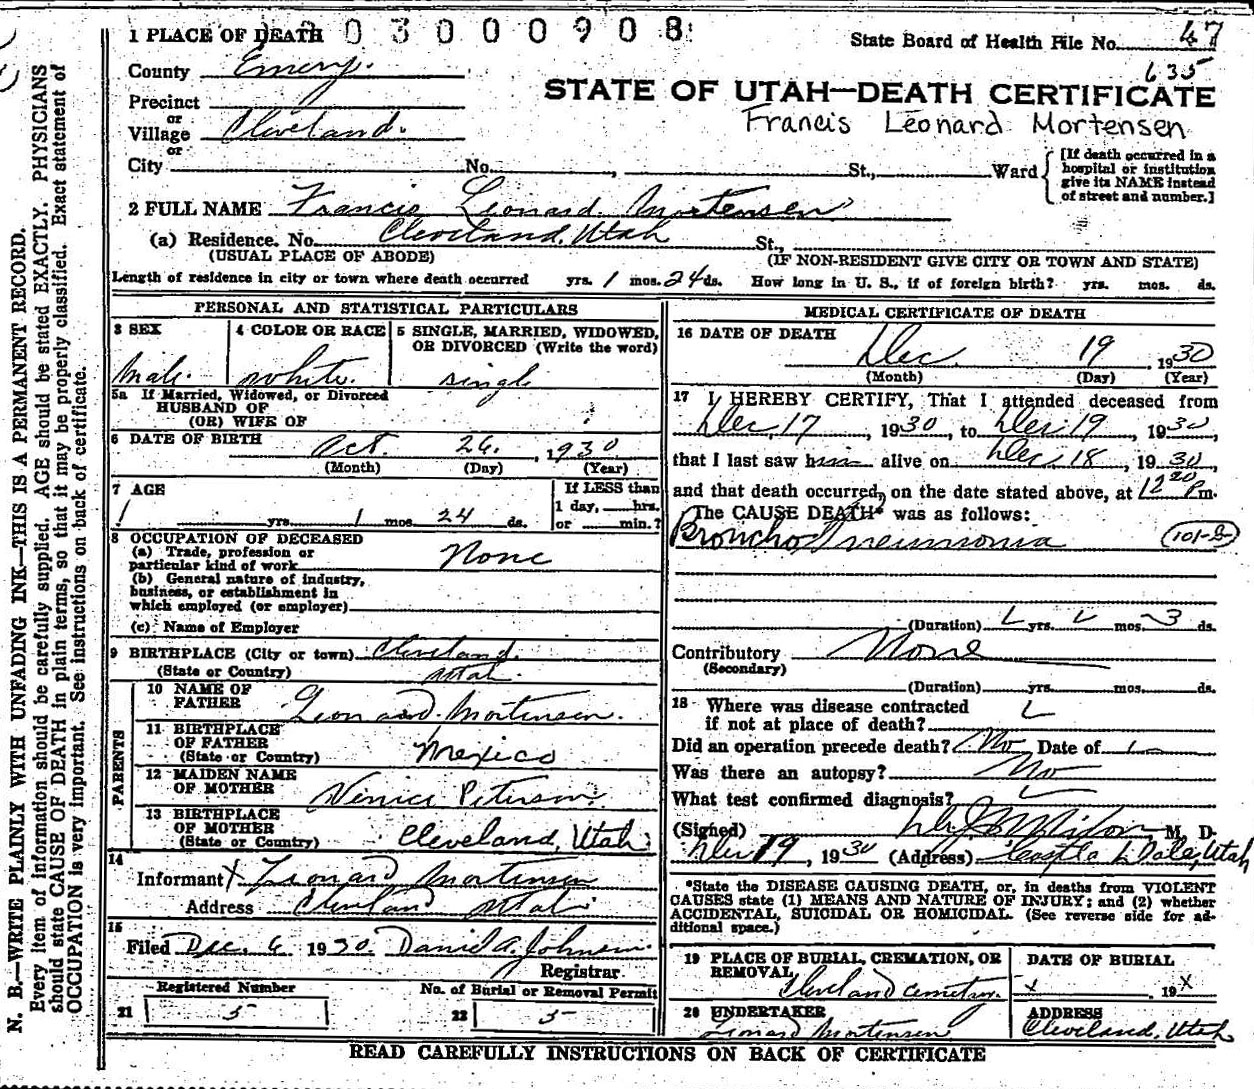 0 3 0 0 0 9 0 8
1 PLACE OF DEATH
State Board of Health File No. 47
County Emery.
635
STATE OF UTAH—DEATH CERTIFICATE
Francis Leonard Mortensen
Precinct
or
Village Cleveland.
or
City No. , St., Ward
[If death occurred in a
hospital or institution
give its NAME instead
of street and number.]
2 FULL NAME Francis Leonard Mortensen
(a) Residence. No. Cleveland, Utah St.,
(USUAL PLACE OF ABODE) (IF NON-RESIDENT GIVE CITY OR TOWN AND STATE)
Length of residence in city or town where death occurred yrs. 1 mos. 24 ds. How long in U. S., if of foreign birth? yrs. mos. ds.
PERSONAL AND STATISTICAL PARTICULARS
3 SEX
Male
4 COLOR OR RACE
White
5 SINGLE, MARRIED, WIDOWED,
OR DIVORCED (Write the word)
single
5a If Married, Widowed, or Divorced
HUSBAND OF
(OR) WIFE OF
6 DATE OF BIRTH Oct. 26, 1930
(Month) (Day) (Year)
7 AGE
yrs. 1 mos. 24 ds.
If LESS than
1 day, hrs.
or min.?
8 OCCUPATION OF DECEASED
(a) Trade, profession or
particular kind of work None
(b) General nature of industry,
business, or establishment in
which employed (or employer)
(c) Name of Employer
9 BIRTHPLACE (City or town) Cleveland
(State or Country) Utah.
PARENTS
10 NAME OF
FATHER Leonard Mortensen.
11 BIRTHPLACE
OF FATHER
(State or Country) Mexico
12 MAIDEN NAME
OF MOTHER Venice Peterson
13 BIRTHPLACE
OF MOTHER
(State or Country) Cleveland, Utah
14
Informant X Leonard Mortensen
Address Cleveland Utah
15
Filed Dec. 6 1930. Daniel A. Johnson.
Registrar
Registered Number No. of Burial or Removal Permit
21 5 22 5
MEDICAL CERTIFICATE OF DEATH
16 DATE OF DEATH
Dec. 19, 1930
(Month) (Day) (Year)
17 I HEREBY CERTIFY, That I attended deceased from
Dec. 17, 1930, to Dec. 19, 1930,
that I last saw him alive on Dec. 18, 1930,
and that death occurred, on the date stated above, at 12 20 Pm.
The CAUSE DEATH* was as follows:
Broncho Pneumonia
(Duration) yrs. mos. 3 ds.
Contributory None
(Secondary)
(Duration) yrs. mos. ds.
18 Where was disease contracted
if not at place of death?
Did an operation precede death? No Date of
Was there an autopsy? No
What test confirmed diagnosis?
(Signed) M. D.
Dec 19, 1930 (Address) Castle Dale, Utah
*State the DISEASE CAUSING DEATH, or, in deaths from VIOLENT
CAUSES state (1) MEANS AND NATURE OF INJURY; and (2) whether
ACCIDENTAL, SUICIDAL OR HOMICIDAL. (See reverse side for ad-
ditional space.)
19 PLACE OF BURIAL, CREMATION, OR
REMOVAL
Cleveland Cemetery.
DATE OF BURIAL
x, 19 x
20 UNDERTAKER
Leonard Mortensen
ADDRESS
Cleveland, Utah
READ CAREFULLY INSTRUCTIONS ON BACK OF CERTIFICATE
N. B.—WRITE PLAINLY WITH UNFADING INK—THIS IS A PERMANENT RECORD.
Every item of information should be carefully supplied. AGE should be stated EXACTLY. PHYSICIANS
should state CAUSE OF DEATH in plain terms, so that it may be properly classified. Exact statement of
OCCUPATION is very important. See instructions on back of certificate.